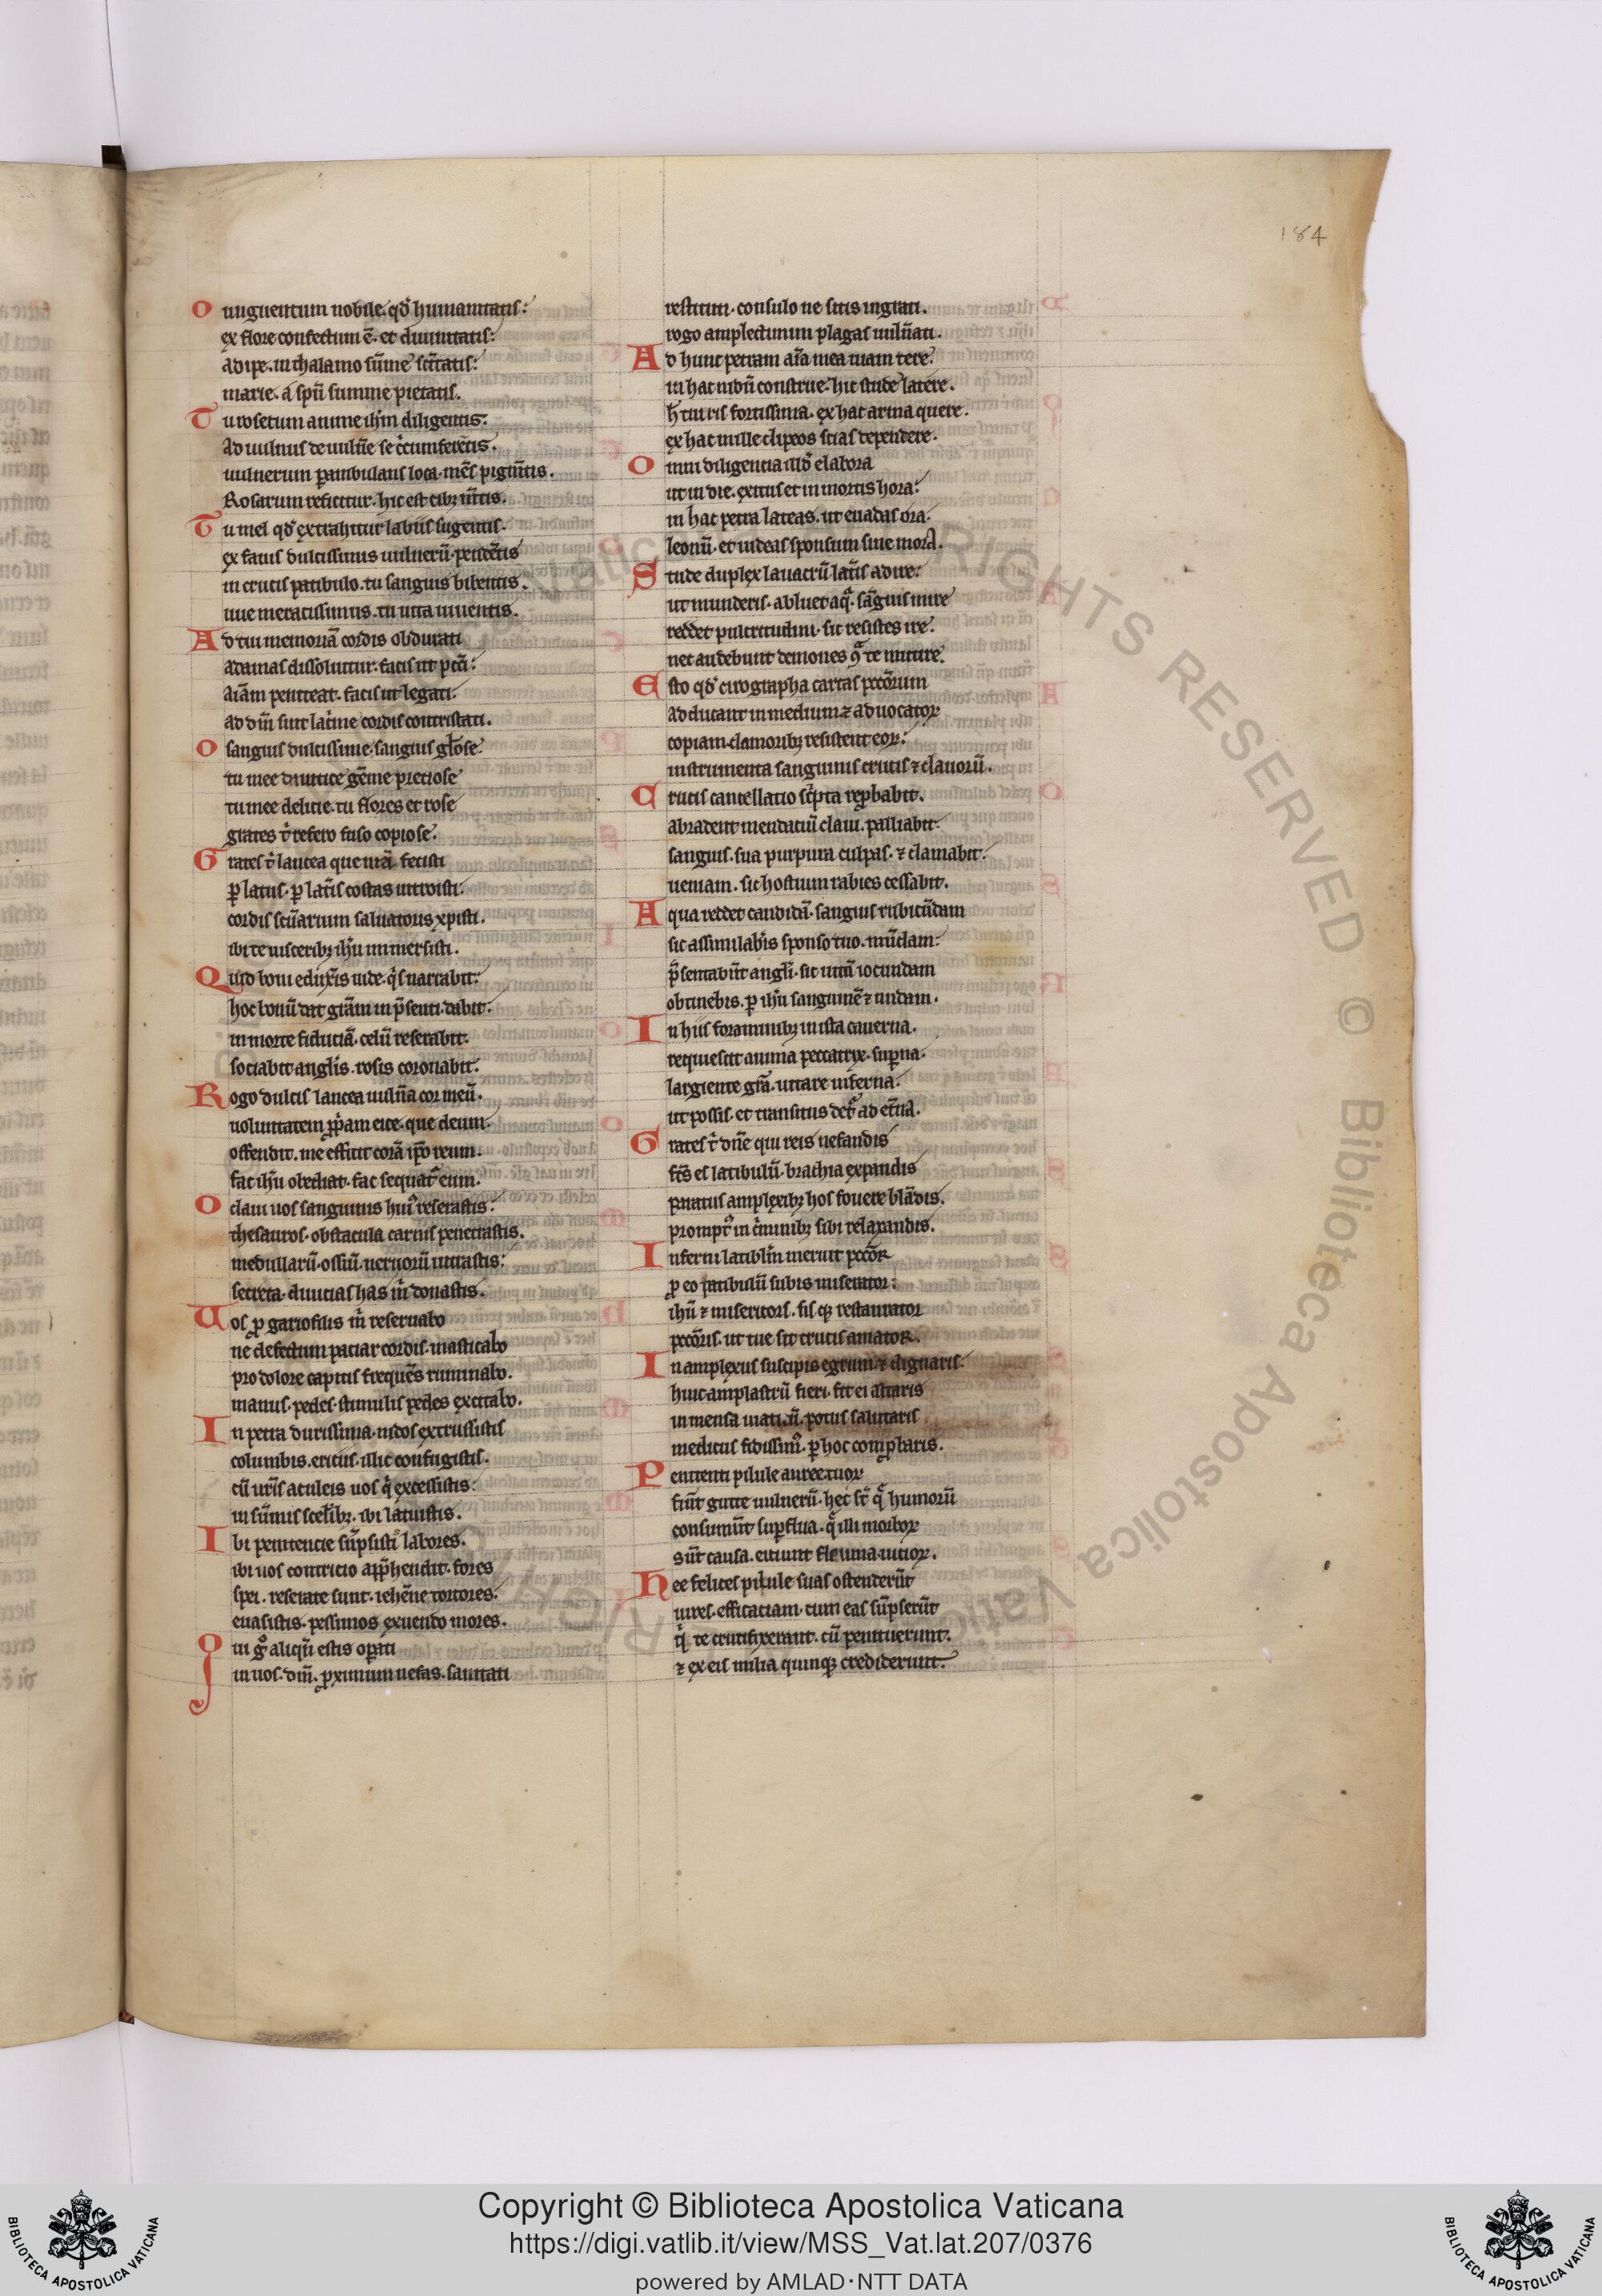 184
O unguentum nobile. qđ humanitatis:
ex flore confectum ē. et diuinitatis:
adipe. in thalamo sūme sc̄itatis:
marie. a sp̄u summe pietatis.
Tu rosetum anime ih̄m diligentis.
Ad uulnus de uuln̄e se c̄cumferētis.
uulnerum ꝑambulans loca. mēs
Rosarum reficitur. hic est cibꝫ m̄tis.
Tu mel qđ extrahitur labiis sugentis.
ex fauis dulcissimis uulnerū. pendētis
in crucis patibulo. tu sanguis bibentis.
uue meracissimus. tu uita uiuentis.
Ad tui memoriā cordis obdurati
adamas dissoluitur. facis ut pc̄ti:
aīam peniteat. facis ut legati.
ad dm̄ sint lac̄me cordis contristati.
O sanguis dulcissime. sanguis gl̄ose.
tu mee diuitice gēme preciose
tu mee delicie. tu flores et rose
grates t̄ refero fuso copiose.
Grates t̄ lancea que uiā fecisti
ꝑ latus. ꝑ lat̄is costas introisti.
cordis scūarium saluatoris xpisti.
ibi te uisceribꝫ ih̄u immersisti.
Quid boni eduxis inde. q̄s narrabit:
hoc bonū dat grām in p̄senti. dabit.
in morte fiduciā. celū reserabit.
sociabit anglis. rosis coronabit.
Rogo dulcis lancea uuln̄a cor meū.
uoluntatem ꝓp̄am eice. que deum.
offendit. me efficit corā ip̄o reum.
fac ih̄u obediat. fac sequat̄ eum.
O claui uos sanguinis hui᷒ reserastis.
thesauros. obstacula carnis penetrastis.
medullarū. ossiū. neruorū intrastis:
secreta. diuicias has m̄ donastis.
Uos ꝓ gariofilis m̄ reseruabo
ne defectum paciar cordis. masticabo
pro dolore capitis frequēs ruminabo.
manus. pedes. stimulis pedes excitabo.
In petra durissima. nidos extruxistis
columbis. ericiis. illic confugistis.
cū ur̄is aculeis uos q̄ excessistis:
in sūmis scel̄ibꝫ. ibi latuistis.
Ibi penitencie sūpsisti᷒ labores.
ibi uos contricio app̄hendit. fores
spei. reserate sunt. iehēne tortores.
euasistis. pessimos exuendo mores.
Qui g᷒ aliqn̄ estis oꝑati
in uos. dm̄. ꝓximum nefas. sanitati
restituti. consulo ne sitis ingrati.
rogo amplectimini plagas uuln̄ati.
Ad hunc petram aīa mea uiam tere.
in hac nidū construe. hic stude latere.
h̄ turris fortissima. ex hac arma quere.
ex hac mille clipeos scias dependere.
Omni diligencia illđ elabora
ut in die. exitus et in mortis hora.
in hac petra lateas. ut euadas ora.
leonū. et uideas sponsum sine mora.
Stude duplex lauacrū lat̄is adire:
ut munderis. abluet aq̄. sāguis mire
reddet pulcritudini. sic resistes ire.
nec audebunt demones 9̄ te mittire.
Esto qđ cirographa cartas peccōrum
adducant in medium ⁊ aduocatoꝝ
copiam. clamoribꝫ resistent eoꝝ.
instrumenta sanguinis crucis ⁊ clauorū.
Crucis cancellatio sc̄pta reꝓbabit.
abradent mendaciū claui. palliabit.
sanguis. sua purpura culpas. ⁊ clamabit.
ueniam. sic hostium rabies cessabit.
Aqua reddet candidā. sanguis rubicūdam
sic assimilab̄is sponso tuo. mūdam.
p̄sentabūt angli. sic uitā iocundam
obtinebis. ꝑ ih̄u sanguinē ⁊ undam.
In hiis foraminibꝫ in ista cauerna.
requiescit anima peccatrix. suꝑna.
largiente grā. uitare inferna.
ut possis. et transitus det᷒ ad et̄na.
Grates t̄ dn̄e qui reis nefandis
fc̄s es latibulū. brachia expandis
paratus amplexibꝫ hos fouere blādis.
prompt᷒ in c̄minibꝫ sibi relaxandis.
Inferni latibl̄m meruit peccōr
ꝓ eo patibulū subis miserator:
ih̄u ⁊ misericors. sis qꝫ restaurator
peccōris. ut tue sit crucis amator.
In amplexus suscipis egrum ⁊ dignaris.
huic amplastrū fieri. fit ei altaris
in mensa potus salutaris
medicus fidissim᷒. ꝑ hoc comꝓbaris.
Penitenti pilule auree tuoꝝ
fiūt gutte uulnerū. hec st̄ q̄ humorū
consumūt suꝑflua. q̄ illi morboꝝ
sūt causa. eiciunt fleuma uicioꝝ.
Hee felices pilule suas ostenderūt
uires. efficaciam. cum eas sūpserūt
q̄ te crucifixerant. cū penituerunt.
⁊ ex eis milia quinqꝫ crediderunt.
Copyright © Biblioteca Apostolica Vaticana
https://digi.vatlib.it/view/MSS_Vat.lat.207/0376
powered by AMLAD·NTT DATA
BIBLIOTECA APOSTOLICA VATICANA
BIBLIOTECA APOSTOLICA VATICANA